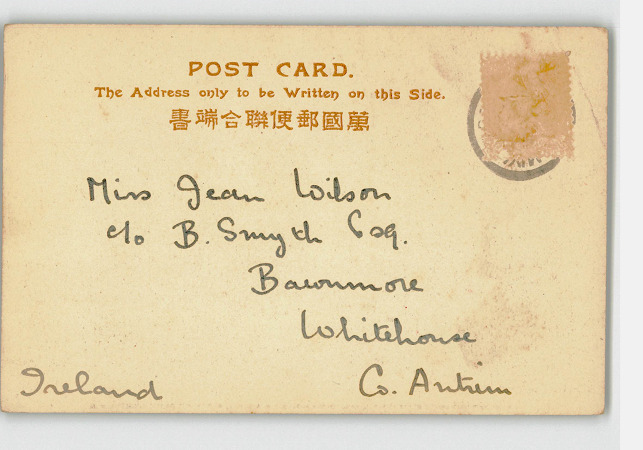 POST CARD.
The Address only to be Written on this Side.
萬國郵便聯合端書
Miss Jean Wilson
c/o B. Smyth Esq.
Bawnmore
Whitehouse
Co. Antrim
Ireland